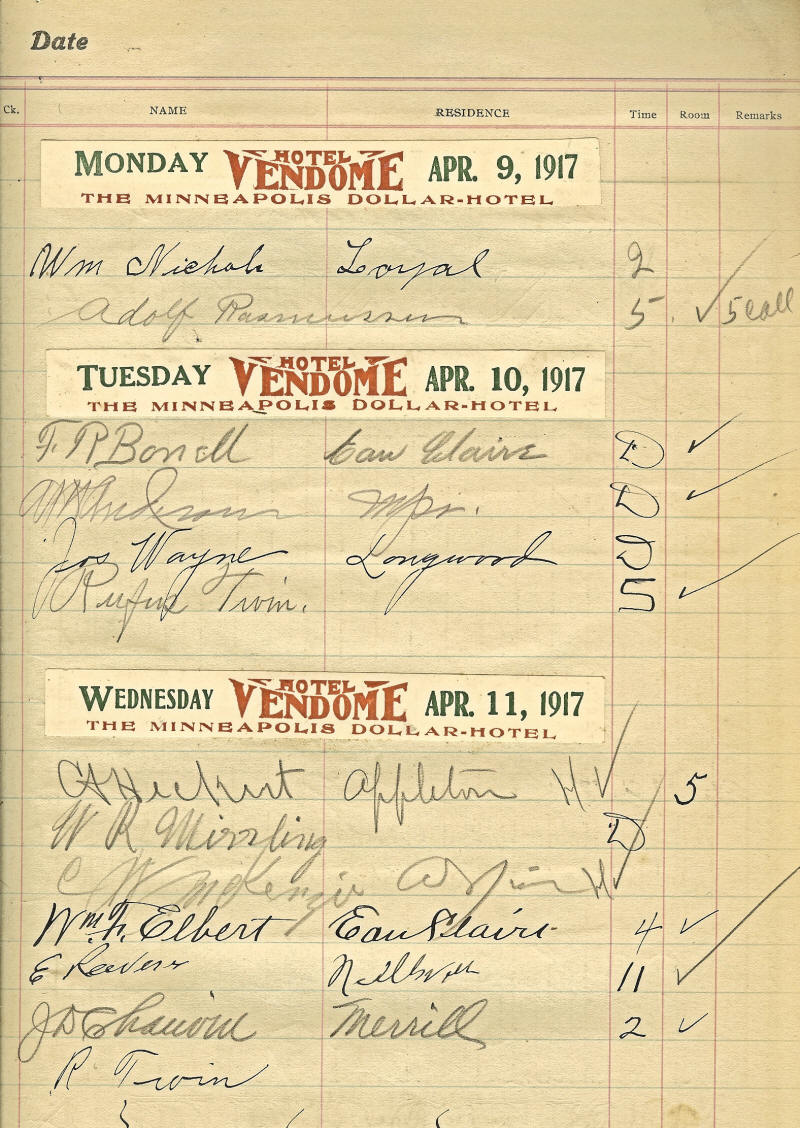 Date
Ck. NAME RESIDENCE Time Room Remarks
MONDAY HOTEL VENDOME APR. 9, 1917
THE MINNEAPOLIS DOLLAR-HOTEL
Wm Nichols Loyal 2
Adolf Rasmussen 5 ✓ 5 Call
TUESDAY HOTEL VENDOME APR. 10, 1917
THE MINNEAPOLIS DOLLAR-HOTEL
F. R Bonell Eau Claire D ✓
Anderson Mps. D ✓
Jos Wayne Longwood D
Rufus Twin. 5 ✓
WEDNESDAY HOTEL VENDOME APR. 11, 1917
THE MINNEAPOLIS DOLLAR-HOTEL
Heckert Appleton H ✓ 5
W R D
C W McKenzie H ✓
Wm. F. Elbert Eau Claire 4 ✓
E Reevers 11 ✓
J D Chauvin Merrill 2 ✓
R Twin